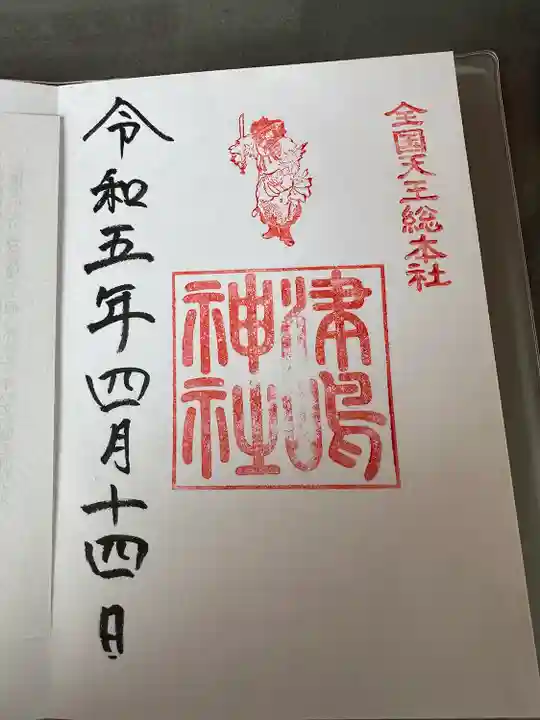 全国天王総本社
津島
神社
令和五年四月十四日